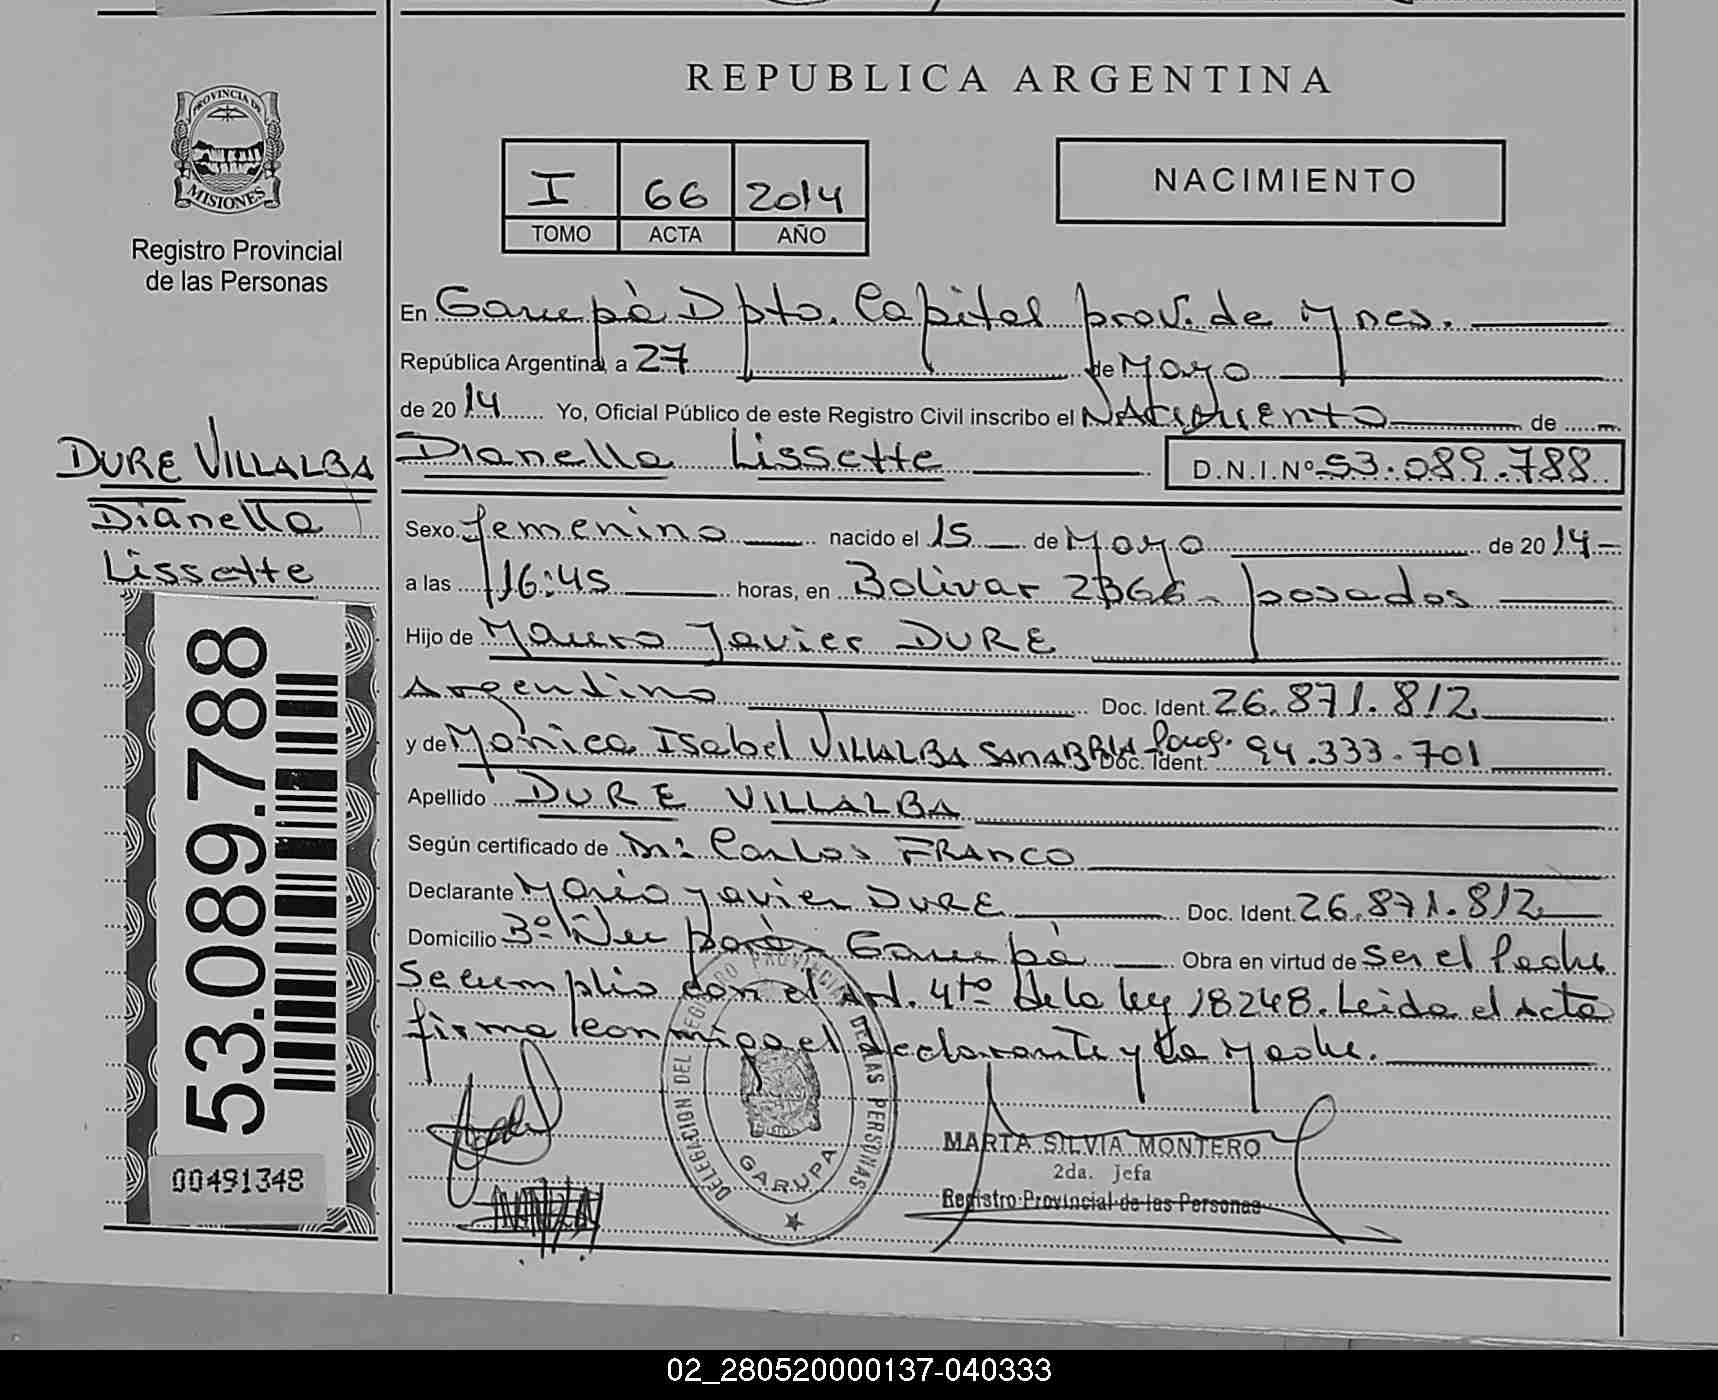 REPUBLICA ARGENTINA
PROVINCIA DE
MISIONES
Registro Provincial
de las Personas
I 66 2014
TOMO ACTA AÑO
NACIMIENTO
En Garupà Dpto. Capital prov. de Mnes.
República Argentina, a 27 de Mayo
de 2014 Yo, Oficial Público de este Registro Civil inscribo el NACIMIENTO de
DURE VILLALBA
Dianella
Lissette
Dianella Lissette D.N.I.Nº 53.089.788
Sexo femenino nacido el 15 de Mayo de 2014
a las 16:45 horas, en Bolivar 2366 - posadas
Hijo de Mauro Javier DURE
Argentino Doc. Ident. 26.871.812
y de Monica Isabel VILLALBA SANABRIA Parag. Doc. Ident. 94.333.701
Apellido DURE VILLALBA
Según certificado de Dr: Carlos FRANCO
Declarante Mario Javier DURE Doc. Ident. 26.871.812
Domicilio Bº Ñu porà - Garupà Obra en virtud de ser el Padre
Se cumplio con el Art. 4to de la ley 18248. Leida el Acta
firma conmigo el declarante y la Madre.
53.089.788
00491348
DELEGACION DEL REGISTRO PROVINCIAL DE LAS PERSONAS
GARUPA
MARTA SILVIA MONTERO
2da. Jefa
Registro Provincial de las Personas
02_280520000137-040333